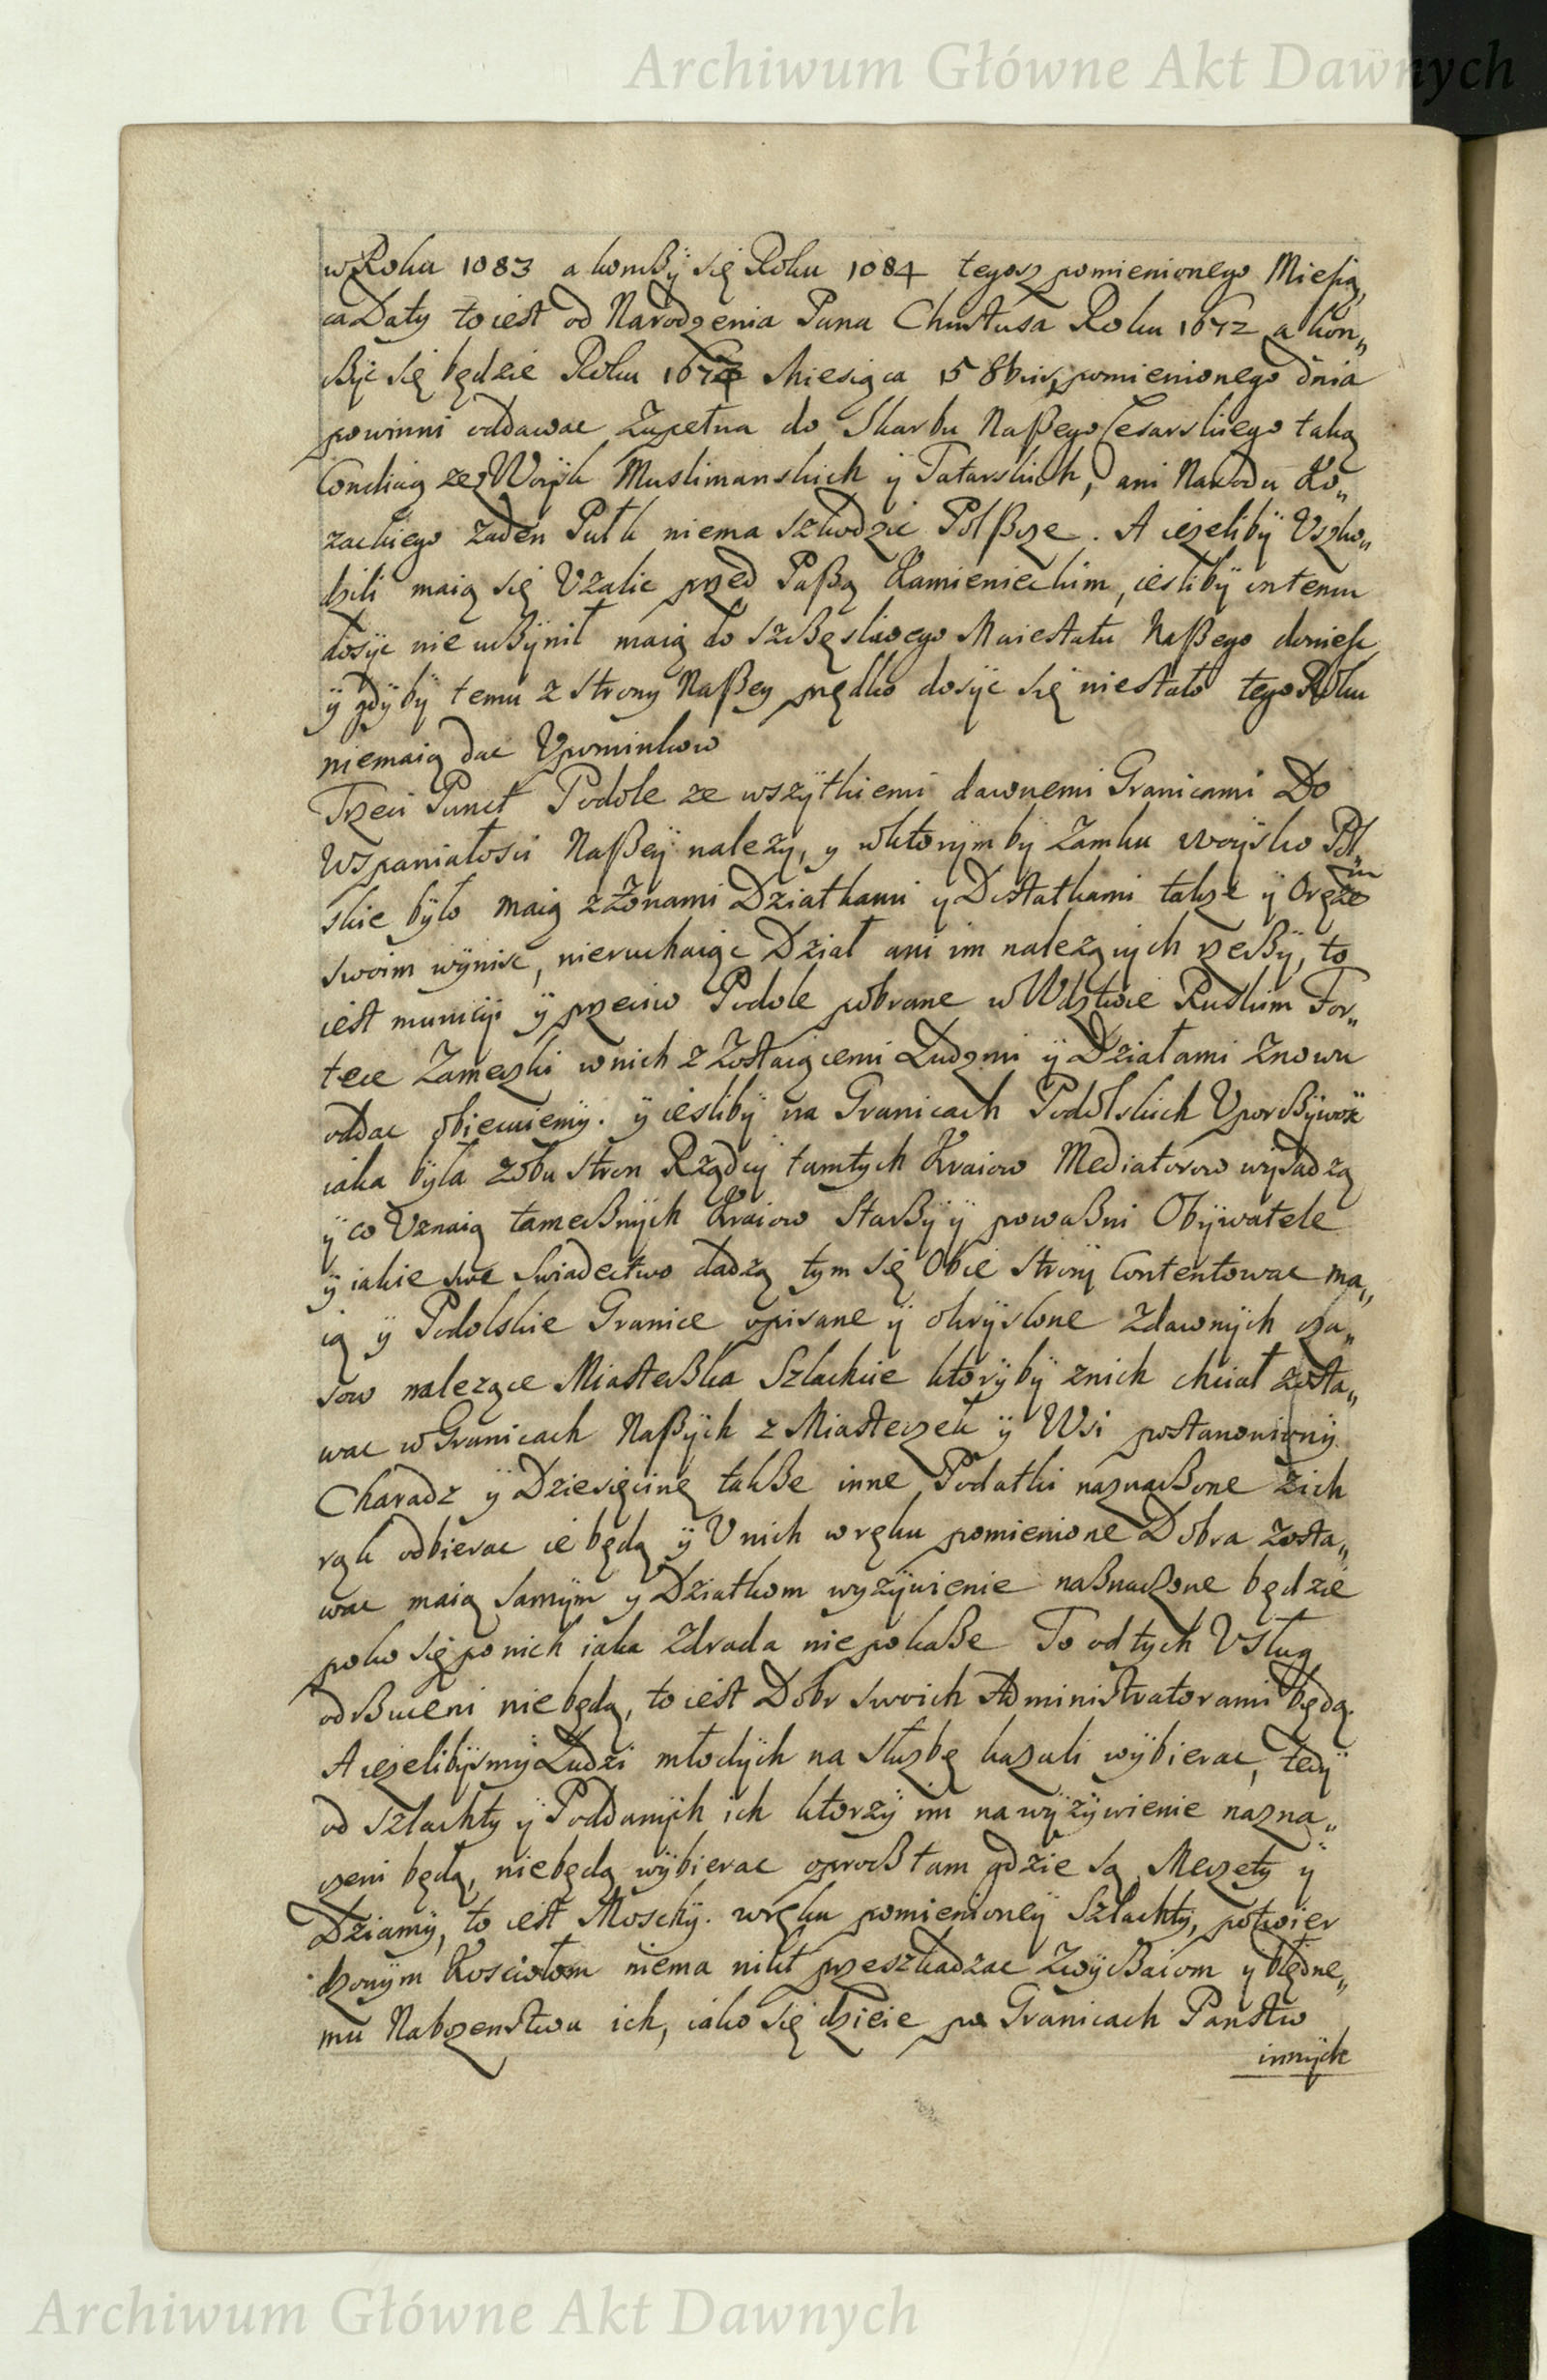 Archiwum Główne Akt Dawnych
w Roku 1083 a konßÿ się Roku 1084 tegosz pomienionego Miesią„
ca Daty to iest od Narodzenia Pana Chrustusa Roku 1672 a kon„
ßÿc się będzie Roku 1673 Miesiąca 15 8bris pomienionego dnia
powinni oddawac Zupełna do Skarbu Naßego Cesarskiego taką
Condicią ze z Woÿsk Muslimanskich ÿ Tatarskich, ani Narodu Ko„
zackiego zaden Pułk niema szkodzic Polßcze. A iezelibÿ Uszko„
dzili maią się Uzalic przed Paßą Kamienieckim, iesliby on temu
dosÿc nie uczÿnił maią do szczęsliwego Maiestatu Naßego doniesc
ÿ gdÿbÿ temu z strony Naßey prędko dosÿc się niestało tego Roku
niemaią dac Upominkow
Trzeci Punct Podole ze wszÿtkiemi dawnemi Granicami Do
Wspaniałosci Naßeÿ nalezy, y w ktorÿm bÿ Zamku woÿsko Pol„
skie bÿło maią z Zonami Dziatkami y Dostatkami takze ÿ Oręzem
swoim wÿnisc, nieruchaiąc Dział ani im nalezącÿch rzeczÿ, to
iest municÿi ÿ przeciw Podole pobrane w Wdztwie Ruskim For„
tece Zameczki w nich z Zostaiącemi Ludzmi ÿ Działami znowu
oddac obiecuiemÿ. ÿ iesliby na Granicach Podolskich Uporczÿwosc
iaka bÿła z obu stron Rządcÿ tamtych Kraiow Mediatorow wÿsadzą
ÿ co Uznaią tamecznÿch Kraiow Starßÿ ÿ powaßni Obÿwatele
ÿ iakie swe swiadectwo dadzą tym się Obie stronÿ Contentowac ma„
ią ÿ Podolskie Granice opisane ÿ okrÿslone z dawnÿch cza„
sow nalezące Miasteczka Szlachcie ktorÿ bÿ z nich chciał zosta„
wac w Granicach Naßÿch z Miasteczek ÿ Wsi postanowionÿ
Charadz ÿ Dziesięcinę takße inne Podatki naznaczone z ich
rąk odbierac ie będą ÿ U nich w ręku pomienione Dobra zosta„
wac maią samÿm y Dziatkom wyzÿwienie naznaczone będzie
poko się po nich iaka Zdrada niepokaße To od tych Usług
odrzuceni nie będą, to iest Dobr swoich Administratorami będą.
A iezelibÿsmÿ Ludzi młodÿch na słuzbę kazali wÿbierac, tedÿ
od szlachty ÿ Poddanÿch ich ktorzÿ im na wÿzÿwienie nazna„
czeni będą, niebędą wÿbierac oprocz tam gdzie są Meczety ÿ
Dziamÿ, to iest Moschÿ. w ręku pomienioneÿ Szlachtÿ, potwier
dzonÿm Kosciołom niema nikt przeszkadzac Zwÿczaiom y błędne„
mu Nabozenstwu ich, iako się dzieie po Granicach Panstw
innÿch
Archiwum Główne Akt Dawnych